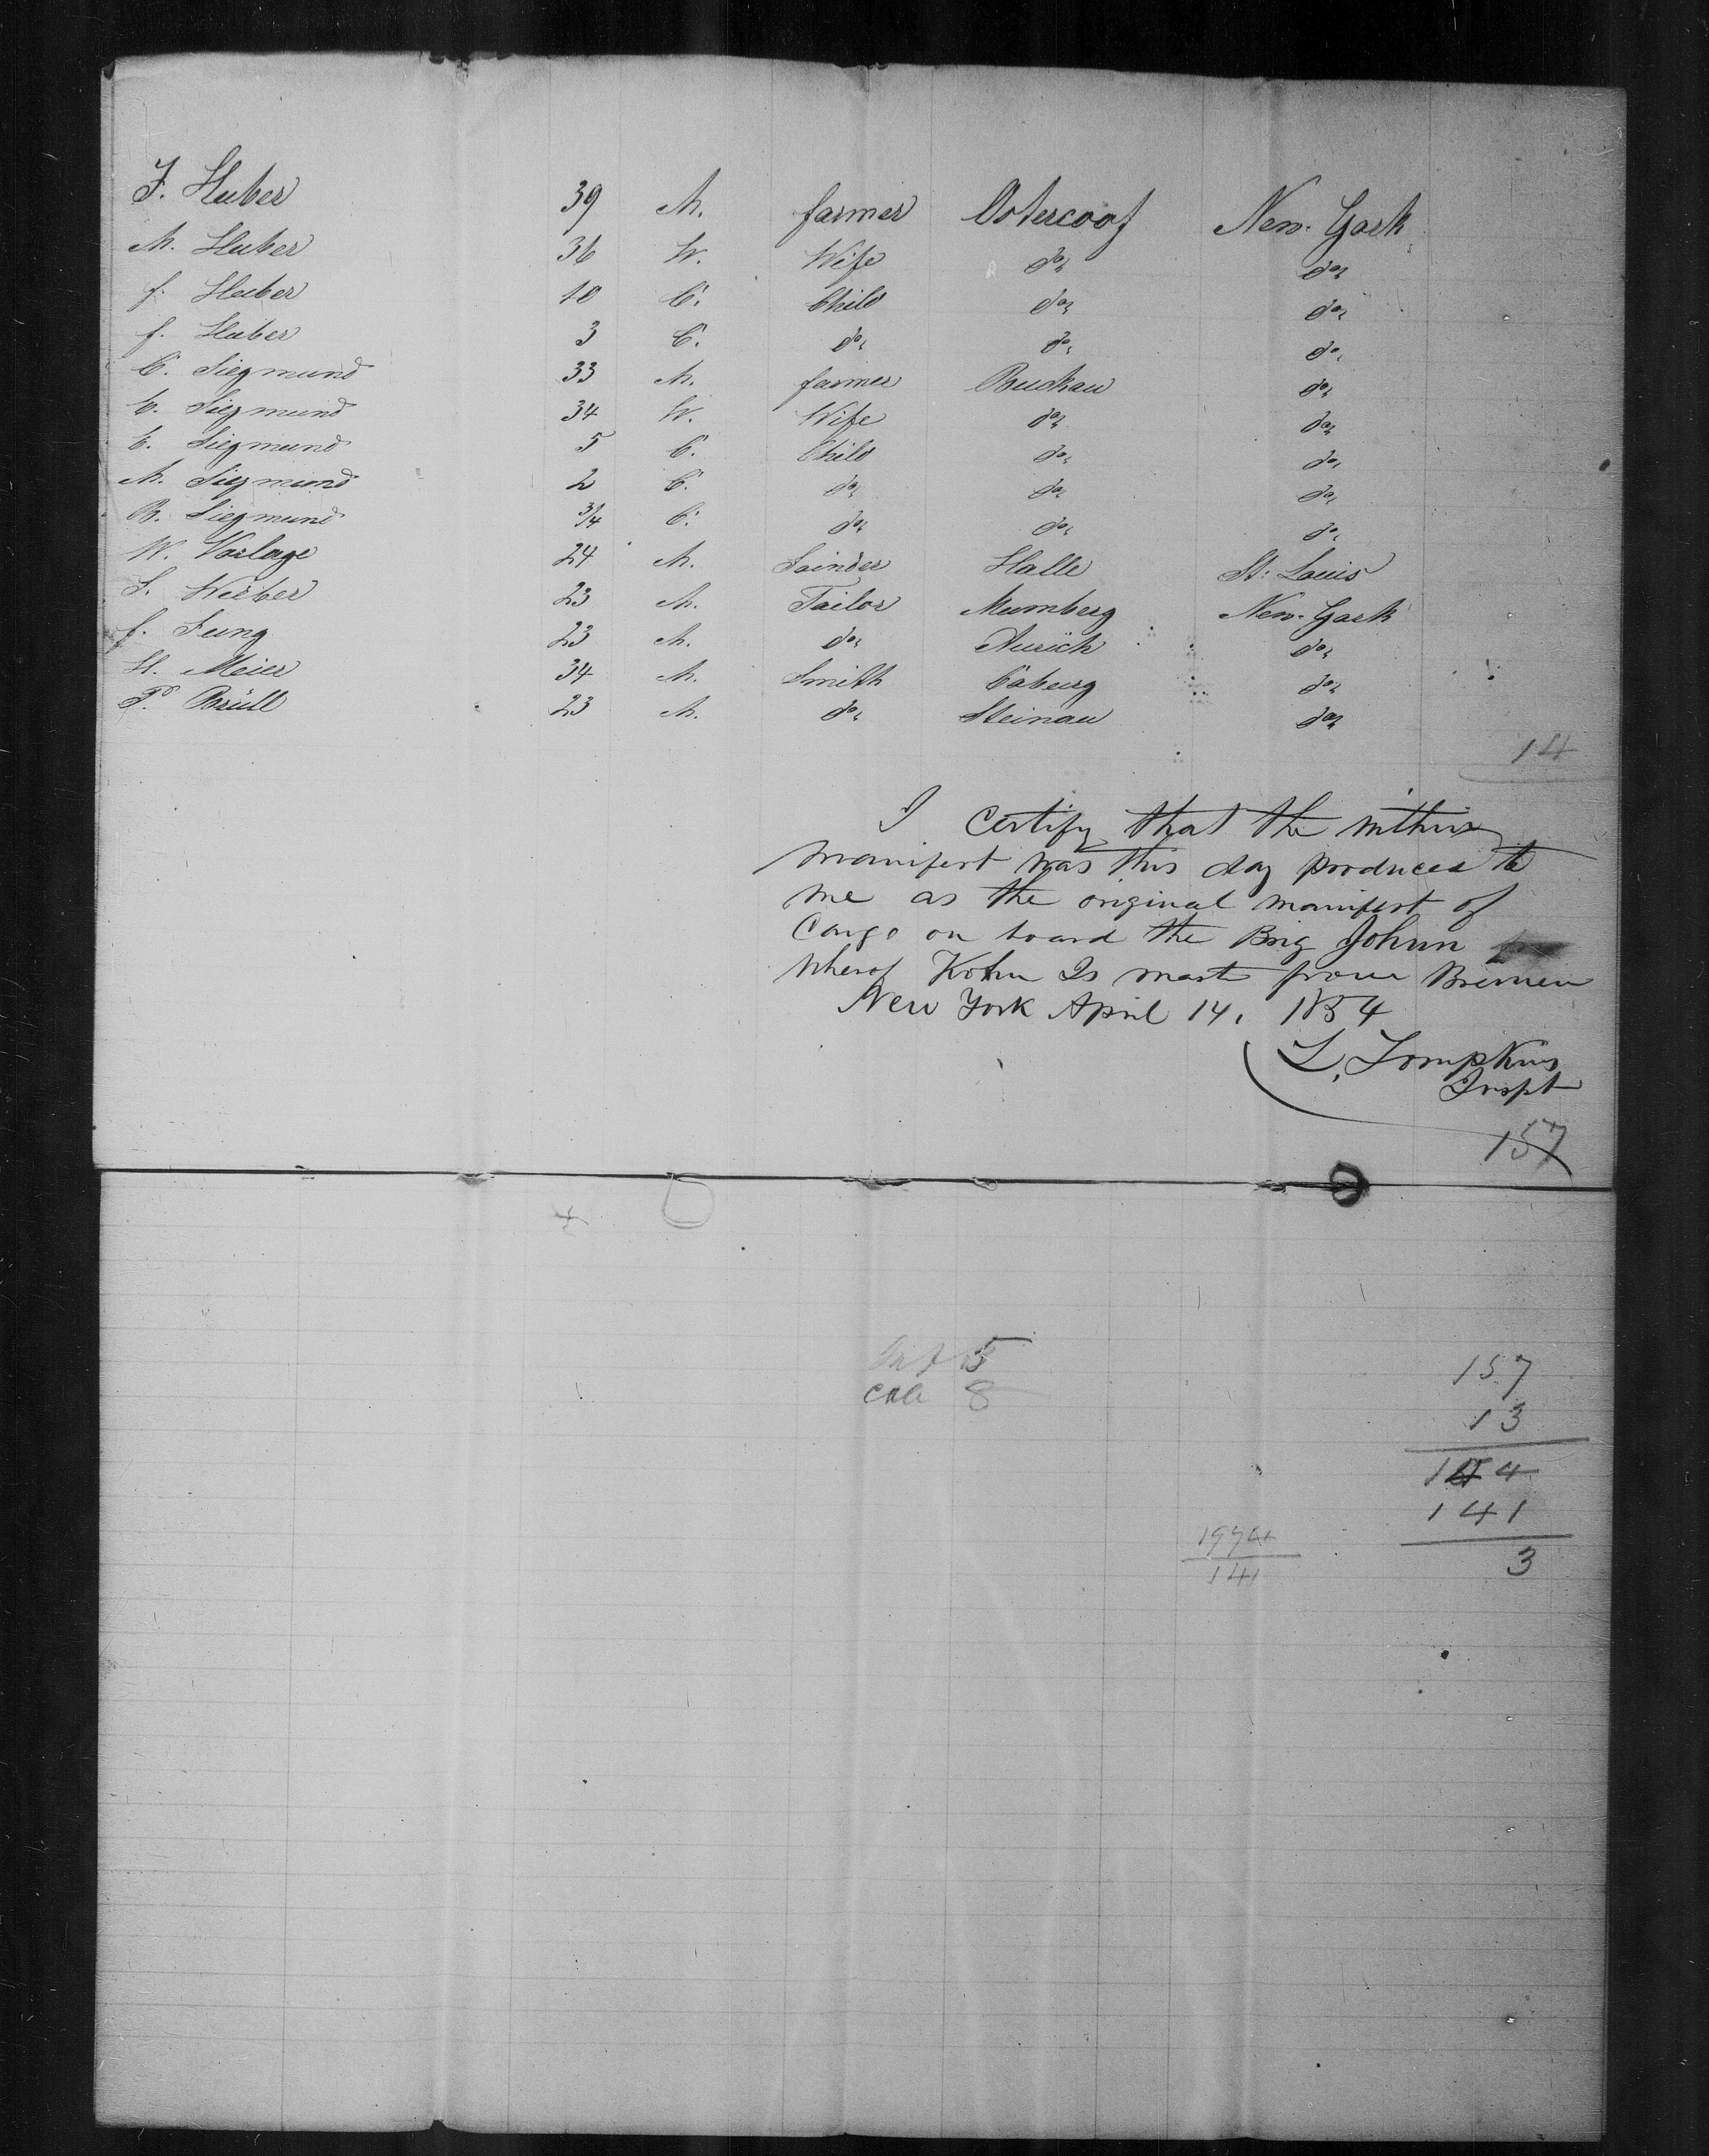 F. Huber 39 M. farmer Ostercoof New-York
M. Huber 36 W. Wife do. do.
f. Huber 10 C. Child do. do.
f. Huber 3 C. do. do. do.
C. Siegmund 33 M. farmer Buckau do.
C. Siegmund 34 W. Wife do. do.
C. Siegmund 5 C. Child do. do.
M. Siegmund 2 C. do. do. do.
B. Siegmund 3/4 C. do. do. do.
W. Varlage 24 M. Joinder Halle St: Louis
S. Weber 23 M. Tailor Mumberg New-York
f. Jung 23 M. do. Aurich do.
H. Meier 34 M. Smith Coburg do.
P. Brüll 23 M. do. Steinau do.
14
I certify that the within
manifest was this day produced to
me as the original manifest of
Cargo on board the Brig Johnn
wherof Kohn Is mast from Bremen
New York April 14, 1854
L. Tompkins
Inspt
157
5
8
157
13
144
141
3
1974
141